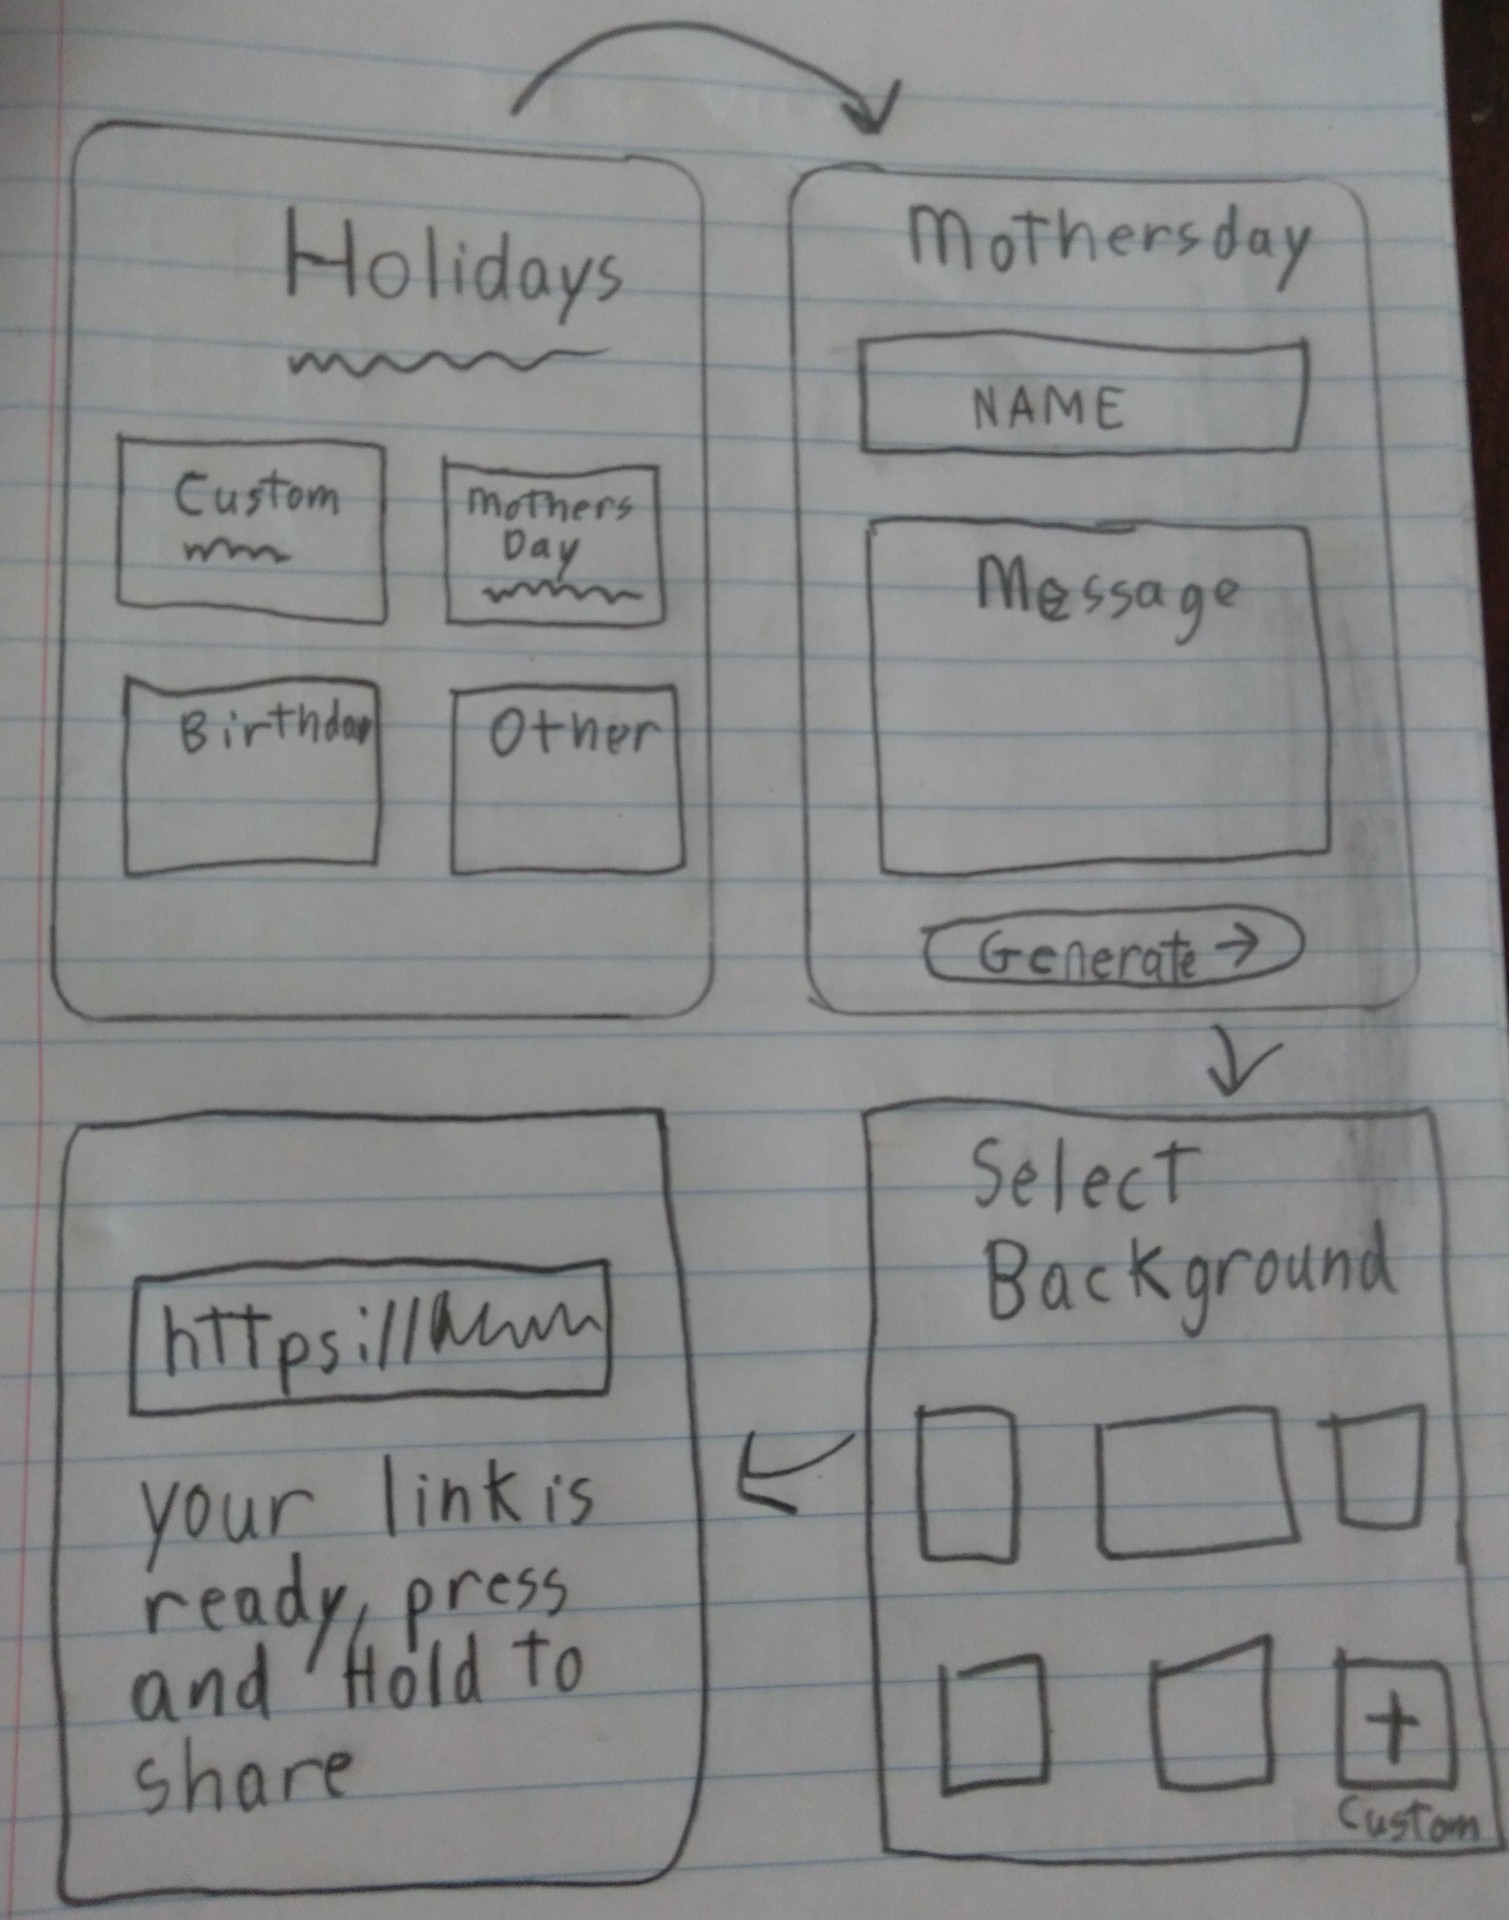 Holidays
Custom
Mothers
Day
Birthday
Other
Mothersday
NAME
Message
Generate →
Select
Background
+
Custom
https://
your link is
ready, press
and Hold to
share